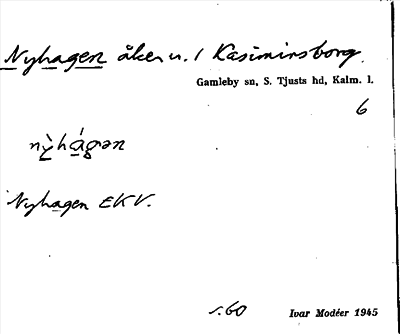 Nyhagen åker u. / Kasimirsborg
Gamleby sn, S. Tjusts hd, Kalm. l.
6
nỳhágən
Nyhagen EKV.
s. 60 Ivar Modéer 1945